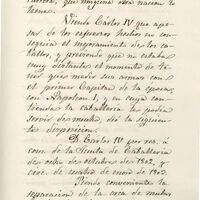 tierra, que ninguna otra nacion lo
tiene.
Viendo Carlos IV que ape-
sar de los esfuerzos hechos no con-
seguia el mejoramiento de los ca-
ballos, y previendo que no estaba
muy distante el momento de te-
ner que medir sus armas con el
el primer Capitan de la época,
con Napoleon I, y en cuya con-
tienda la caballeria le podia
servir de mucho, dió la siguien-
te disposicion.
D. Carlos IV por res. á
cons. de la Junta de Caballeria
de ocho de octubre de 1802, y
cir. de cuatro de enero de 1803.
Siendo conveniente la
separacion de la cria de mulas